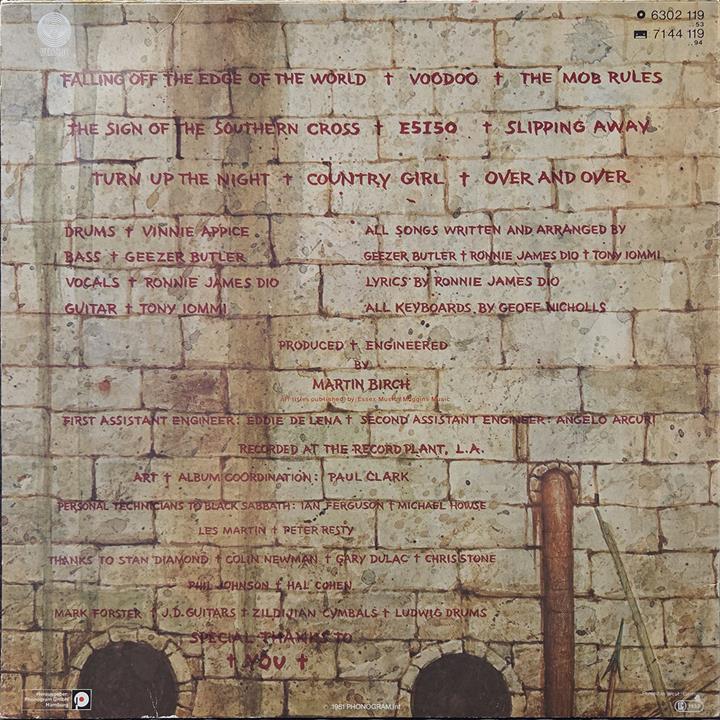 6302 119
..53
7144 119
..94
FALLING OFF THE EDGE OF THE WORLD † VOODOO † THE MOB RULES
THE SIGN OF THE SOUTHERN CROSS † E5150 † SLIPPING AWAY
TURN UP THE NIGHT † COUNTRY GIRL † OVER AND OVER
DRUMS † VINNIE APPICE
BASS † GEEZER BUTLER
VOCALS † RONNIE JAMES DIO
GUITAR † TONY IOMMI
ALL SONGS WRITTEN AND ARRANGED BY
GEEZER BUTLER † RONNIE JAMES DIO † TONY IOMMI
LYRICS BY RONNIE JAMES DIO
ALL KEYBOARDS BY GEOFF NICHOLLS
PRODUCED † ENGINEERED
BY
MARTIN BIRCH
All titles published by Essex Music/Niggins Music
FIRST ASSISTANT ENGINEER: EDDIE DE LENA † SECOND ASSISTANT ENGINEER: ANGELO ARCURI
RECORDED AT THE RECORD PLANT, L.A.
ART † ALBUM COORDINATION: PAUL CLARK
PERSONAL TECHNICIANS TO BLACK SABBATH: IAN FERGUSON † MICHAEL HOWSE
LES MARTIN † PETER RESTY
THANKS TO STAN DIAMOND † COLIN NEWMAN † GARY DULAC † CHRIS STONE
PHIL JOHNSON † HAL COHEN
MARK FORSTER † J.D. GUITARS † ZILDIJIAN CYMBALS † LUDWIG DRUMS
SPECIAL THANKS TO
† YOU †
Herausgeber:
Phonogram GmbH
Hamburg
© 1981 PHONOGRAM, Int.
Printed in West Germany